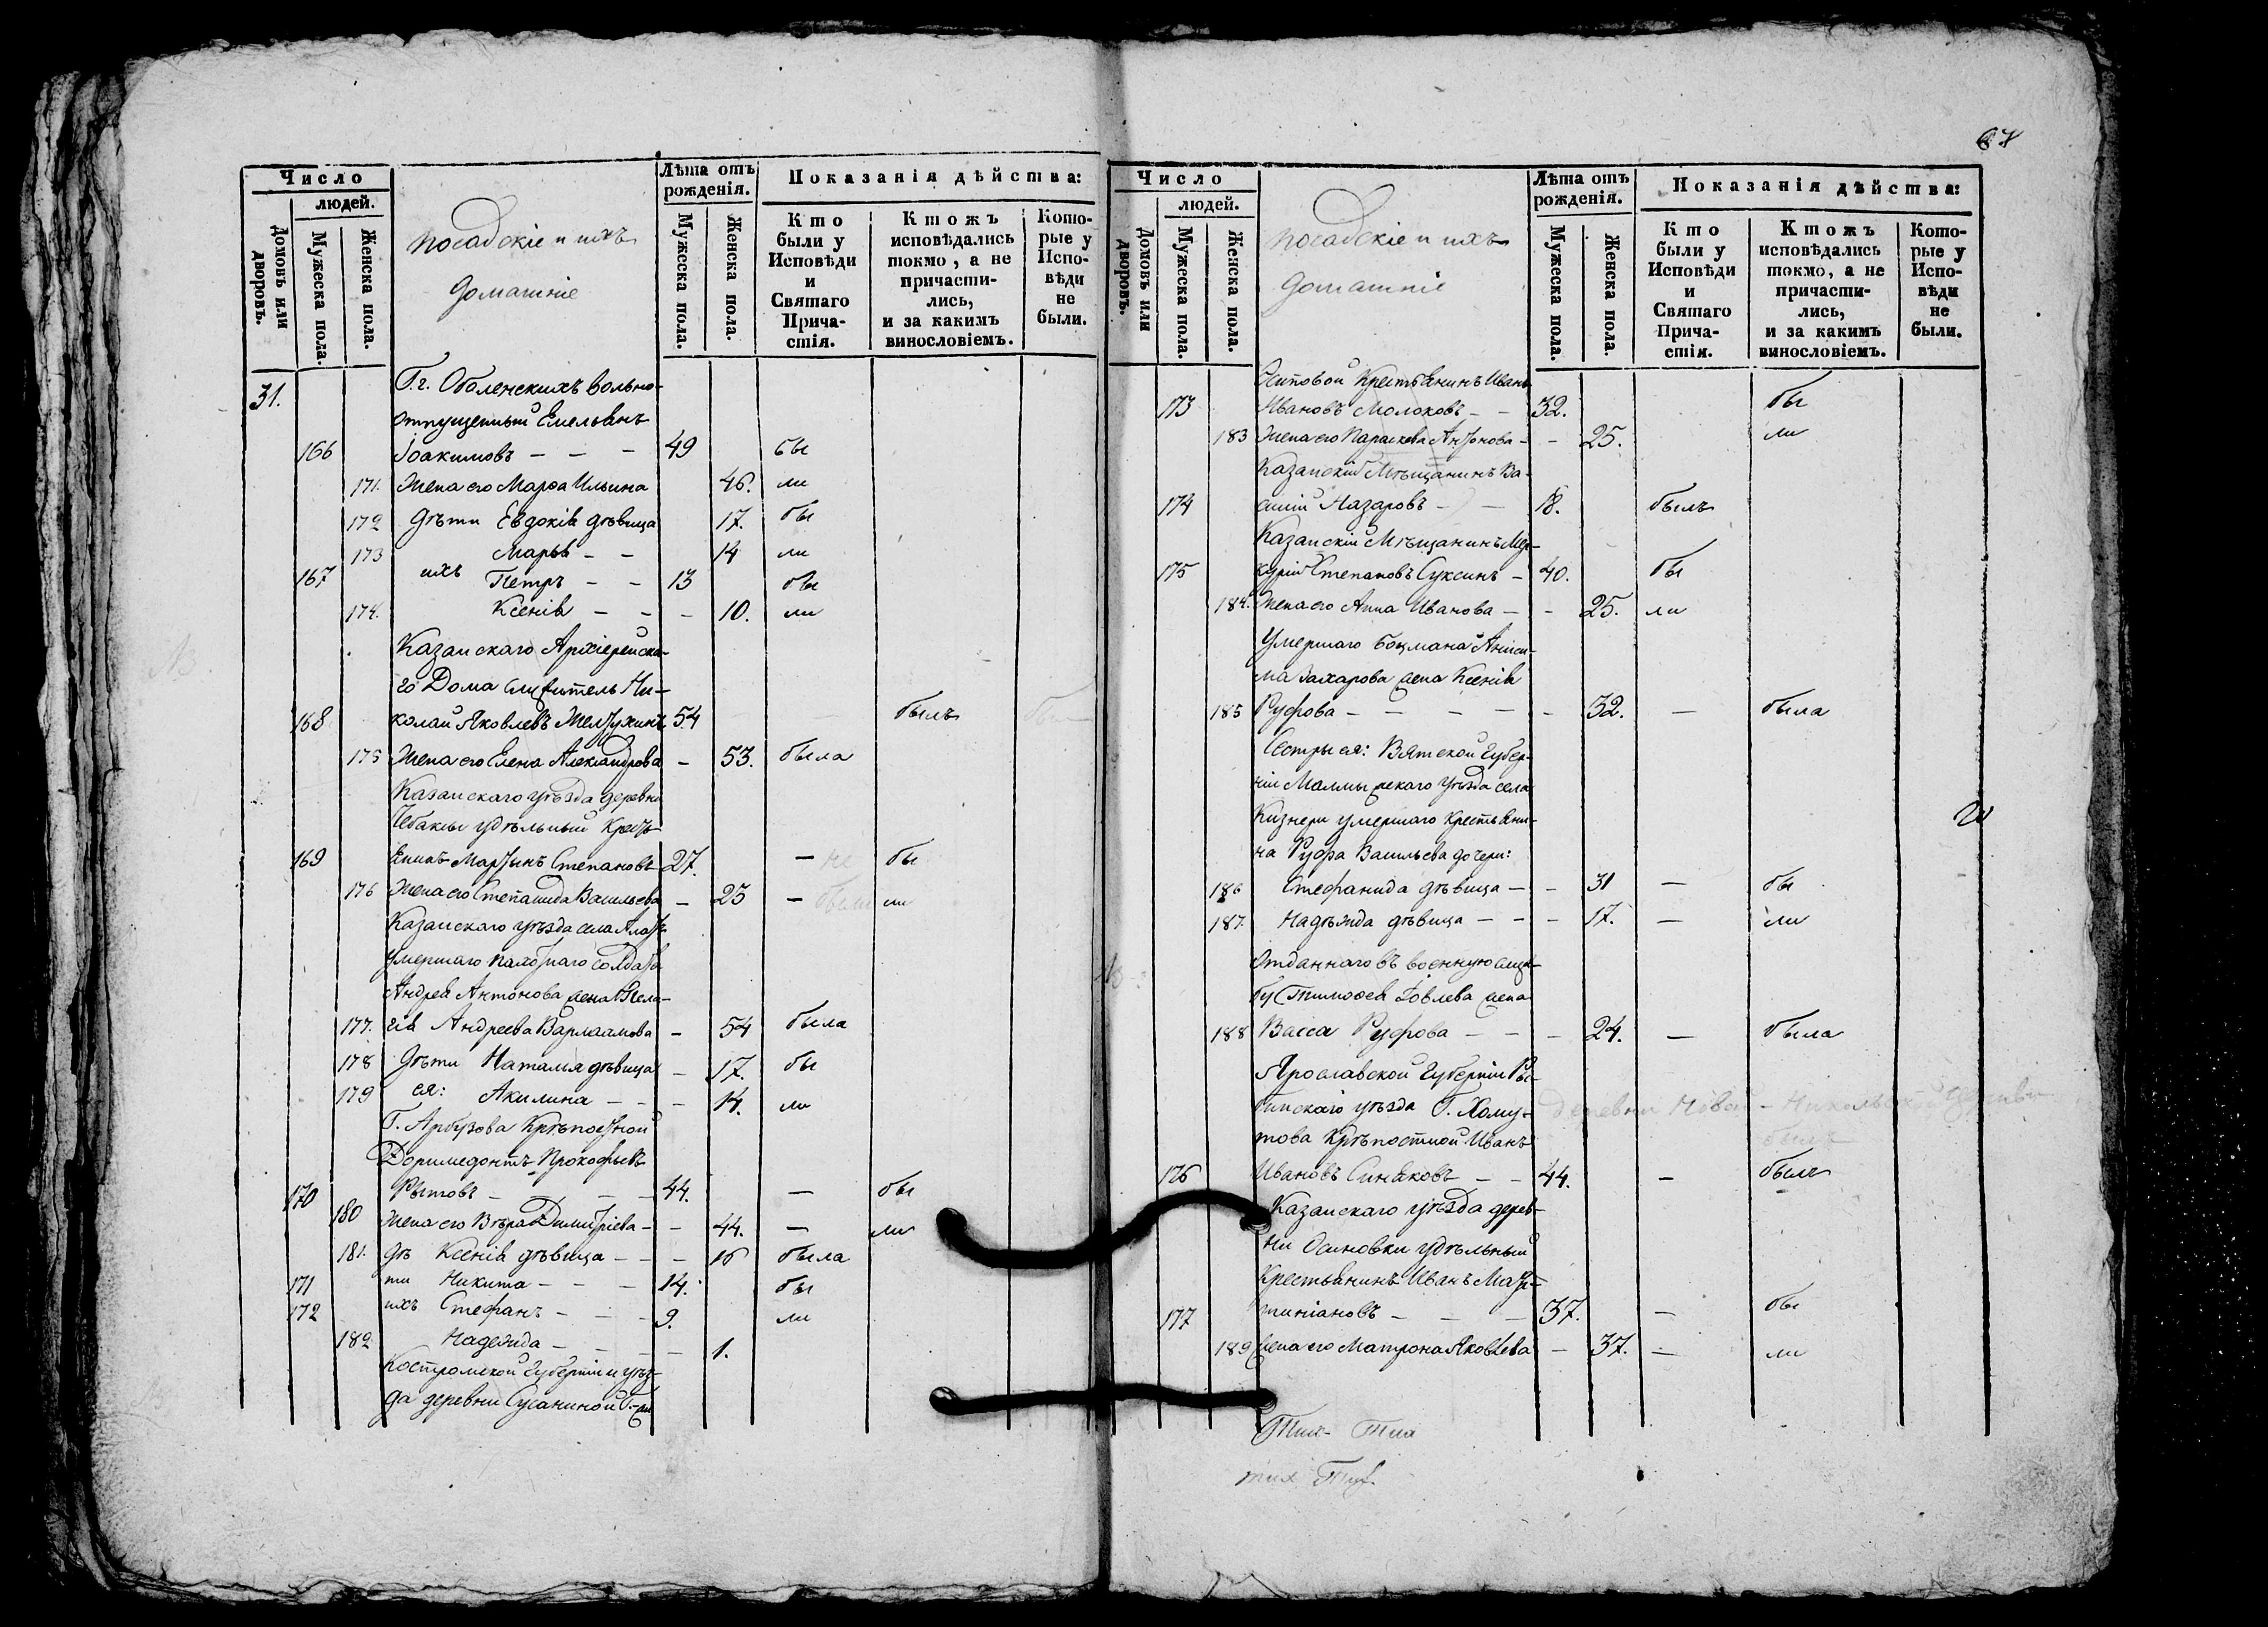 67
Число
людей.
Домовъ или дворовъ.
Мужеска пола.
Женска пола.
посадскіе и ихъ
домашніе
Лѣта отъ рожденія.
Мужеска пола.
Женска пола.
Показанія дѣйства:
Кто были у Исповѣди и Святаго Прича- стія.
Ктожъ исповѣдались токмо, а не причасти- лись, и за какимъ винословіемъ.
Кото- рые у Испо- вѣди не были.
31. Г.г. Оболенскихъ вольно-
отпущенный Емельянъ
166 Іоакимовъ — — — 49 бы
171. Жена его Марѳа Ильина 46. ли
172 Дѣти Евдокія дѣвица 17. бы
173 Марья — — 14 ли
167 ихъ Петръ — — 13 бы
174. Ксенія — — — 10. ли
Казанскаго Архіерейска-
го Дома служитель Ни-
168 колай Яковлевъ 54 былъ
175 Жена его Елена Александрова — 53. была
Казанскаго уѣзда деревни
Чебаксы удѣльный Кресть-
169 янинъ Мартынъ Степановъ 27. — бы
176 Жена его Степанида Васильева — 23 — ли
Казанскаго уѣзда села
умершаго пахотнаго солдата
Андрея Антонова жена Пела-
177. гія Андреева Варламова — 54 была
178 Дѣти Наталья дѣвица — 17. бы
179 ея: Акилина — — — 14. ли
Г. Арбузова Крѣпостной
Доримедонтъ Прокофьевъ
170 Рытовъ — — — 44. — бы
180 Жена его Вѣра Димитріева — — 44. — ли
181. дѣ Ксенія дѣвица — — — 16 была
171 ти Никита — — — 14. бы
172 ихъ Стефанъ — — — 9. ли
182 Надежда — — — — 1.
Костромской Губерніи и уѣз-
да деревни Сусаниной Г-жи
Число
людей.
Домовъ или дворовъ.
Мужеска пола.
Женска пола.
посадскіе и ихъ
домашніе
Лѣта отъ рожденія.
Мужеска пола.
Женска пола.
Показанія дѣйства:
Кто были у Исповѣди и Святаго Прича- стія.
Ктожъ исповѣдались токмо, а не причасти- лись, и за какимъ винословіемъ.
Кото- рые у Испо- вѣди не были.
Есиповой Крестьянинъ Иванъ
173 Ивановъ Молоковъ — — 32. бы
183 Жена его Параскева Антонова — — 25. ли
Казанскій Мѣщанинъ Ва-
174 силій Назаровъ — — 18. былъ
Казанскій Мѣщанинъ Мер-
175 курій Степановъ Суксинъ — 40. бы
184. Жена его Анна Иванова — — 25. ли
Умершаго боцмана Аниси-
ма Захарова жена Ксенія
185 Руфова — — — — — 32. — была
Сестры ея: Вятской Губер-
ніи Малмыжскаго уѣзда села
Кизнери умершаго Крестьяни-
на Руфа Васильева дочери:
186 Стефанида дѣвица — — 31 — бы
187. Надѣжда дѣвица — — — 17. — ли
Отданнаго въ военную служ-
бу Тимоѳея Іовлева жена
188 Васса Руфова — — — 24. — была
Ярославской Губерніи Ры-
бинскаго уѣзда Г. Хому-
това Крѣпостной Иванъ
176 Ивановъ Синяковъ — — 44. — былъ
Казанскаго уѣзда дерев-
ни Осиновки удѣльный
Крестьянинъ Иванъ Мар-
177 тиніановъ — — — 37. — бы
189 Жена его Матрона Яковлева — 37. — ли